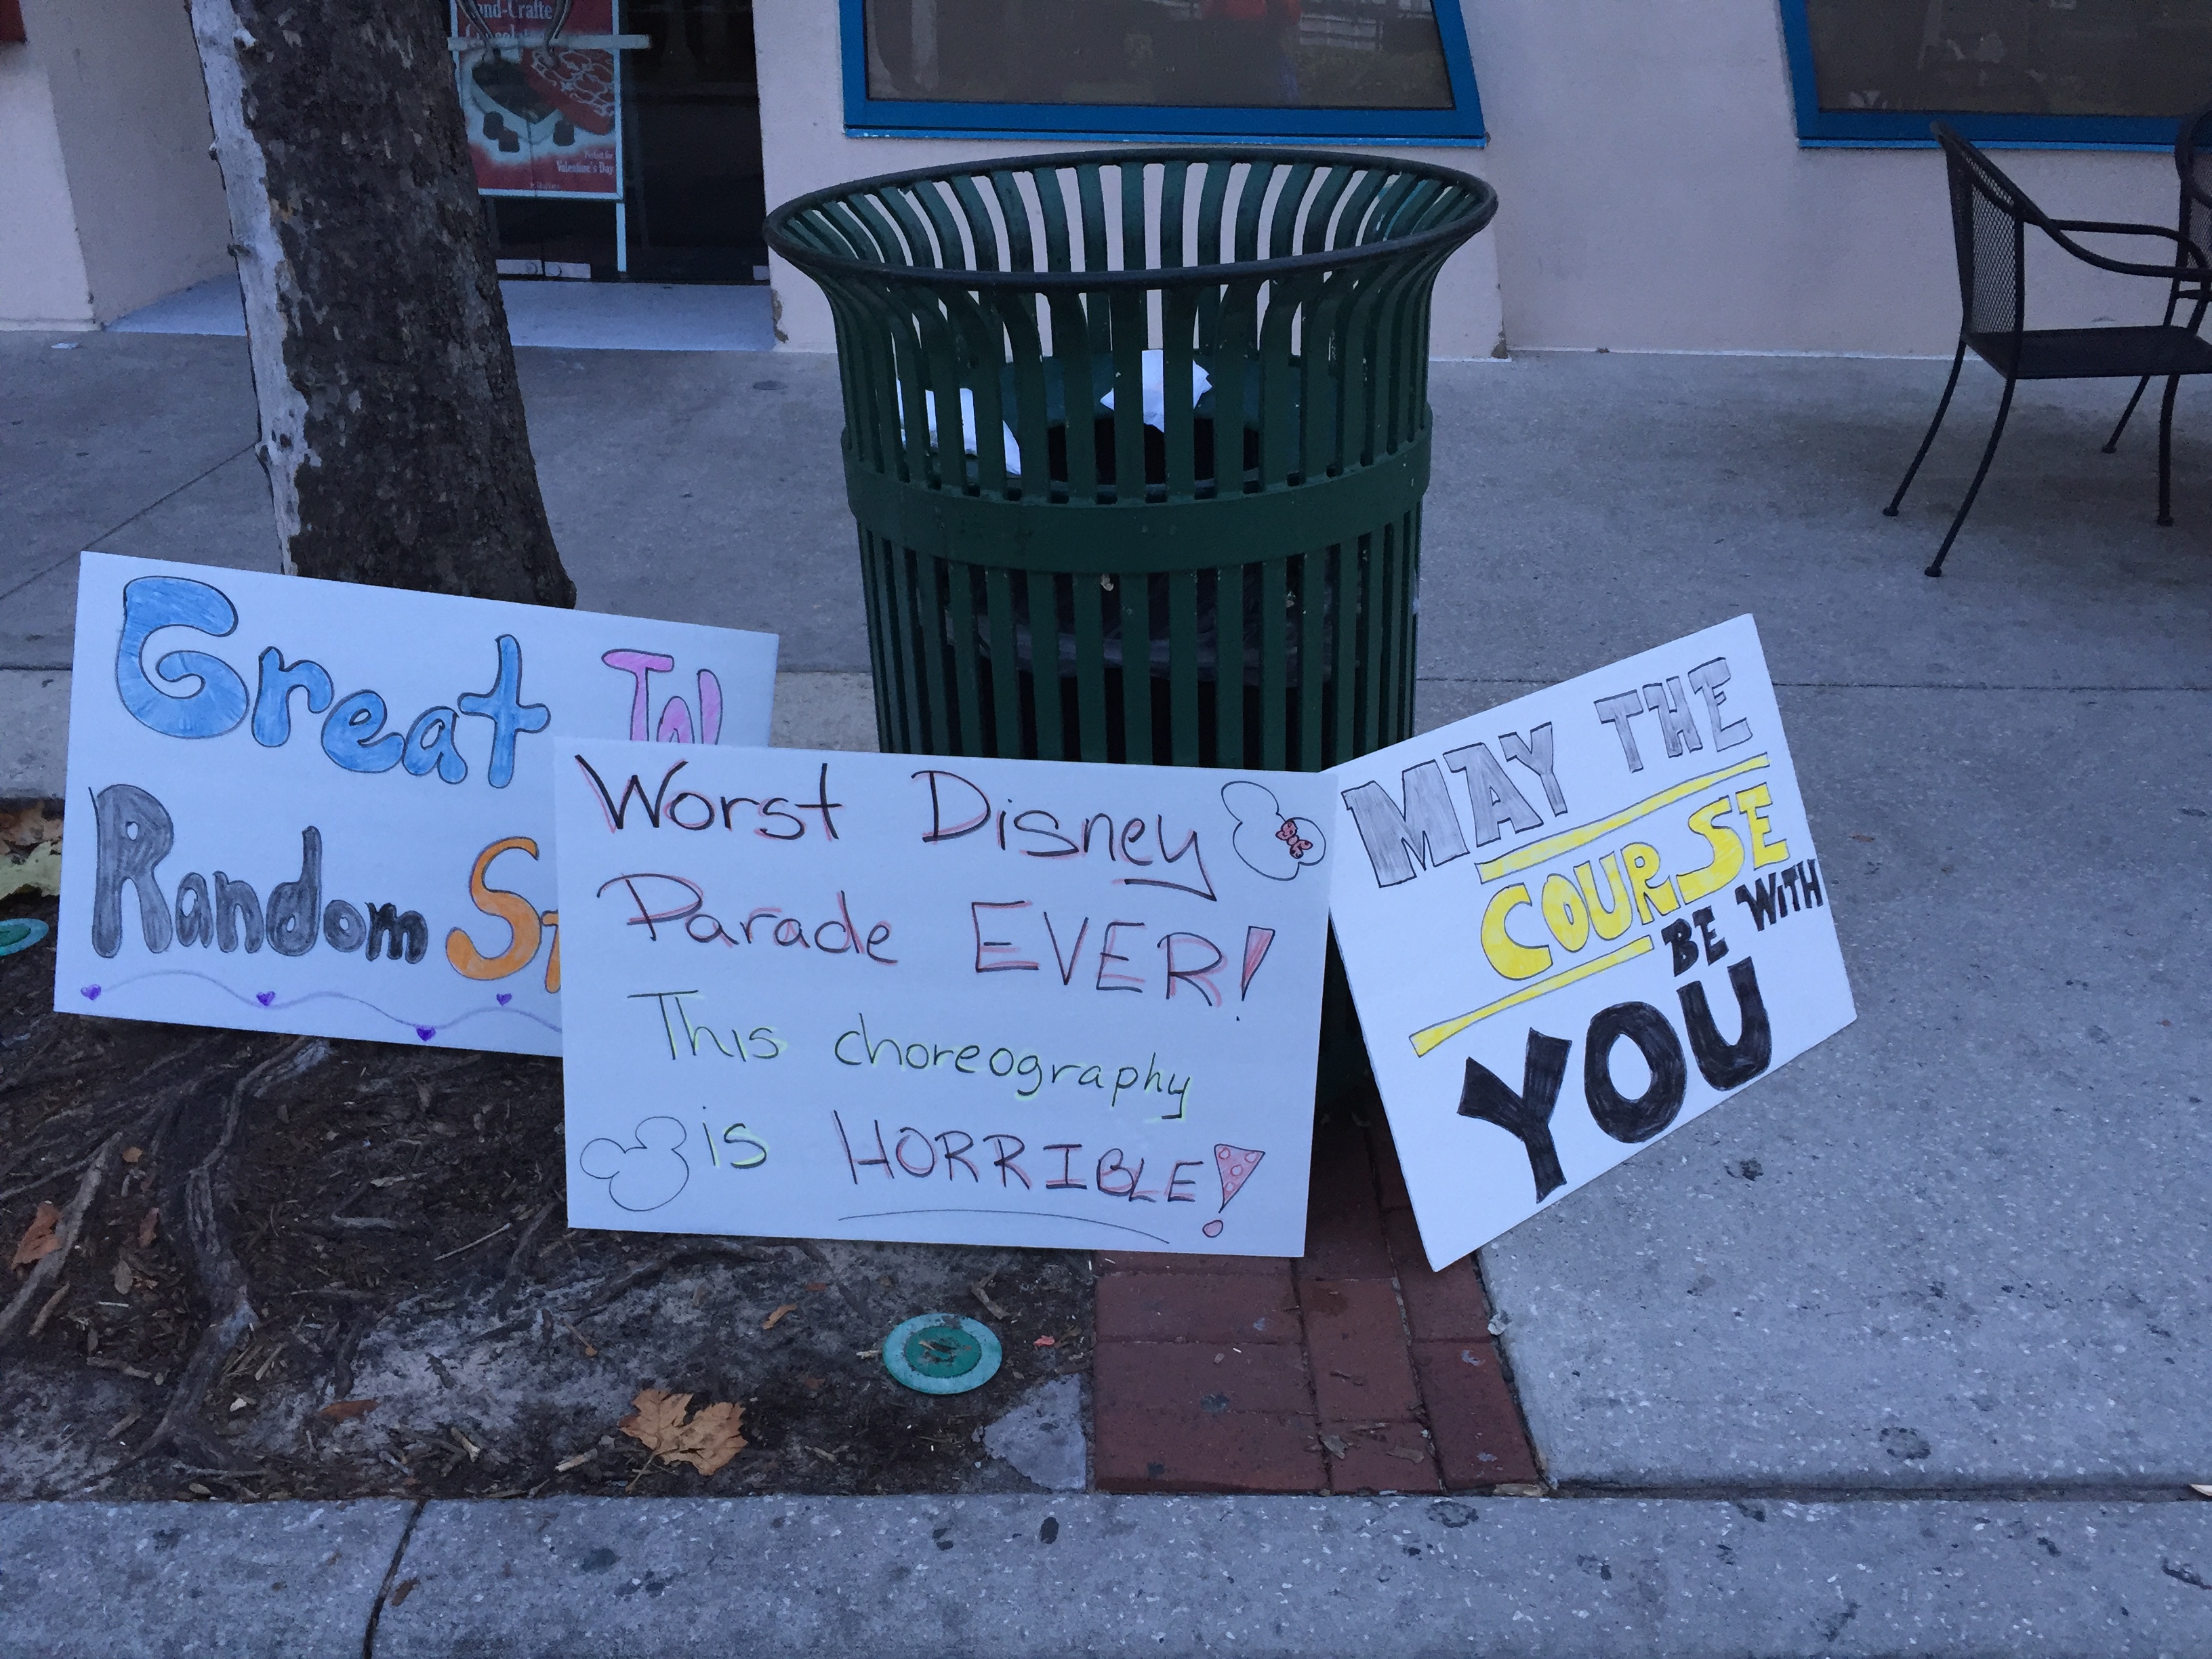 Perfect for
Valentine's Day
Great
Random
Worst Disney
Parade EVER!
This choreography
is HORRIBLE!
MAY THE
COURSE
BE WITH
YOU